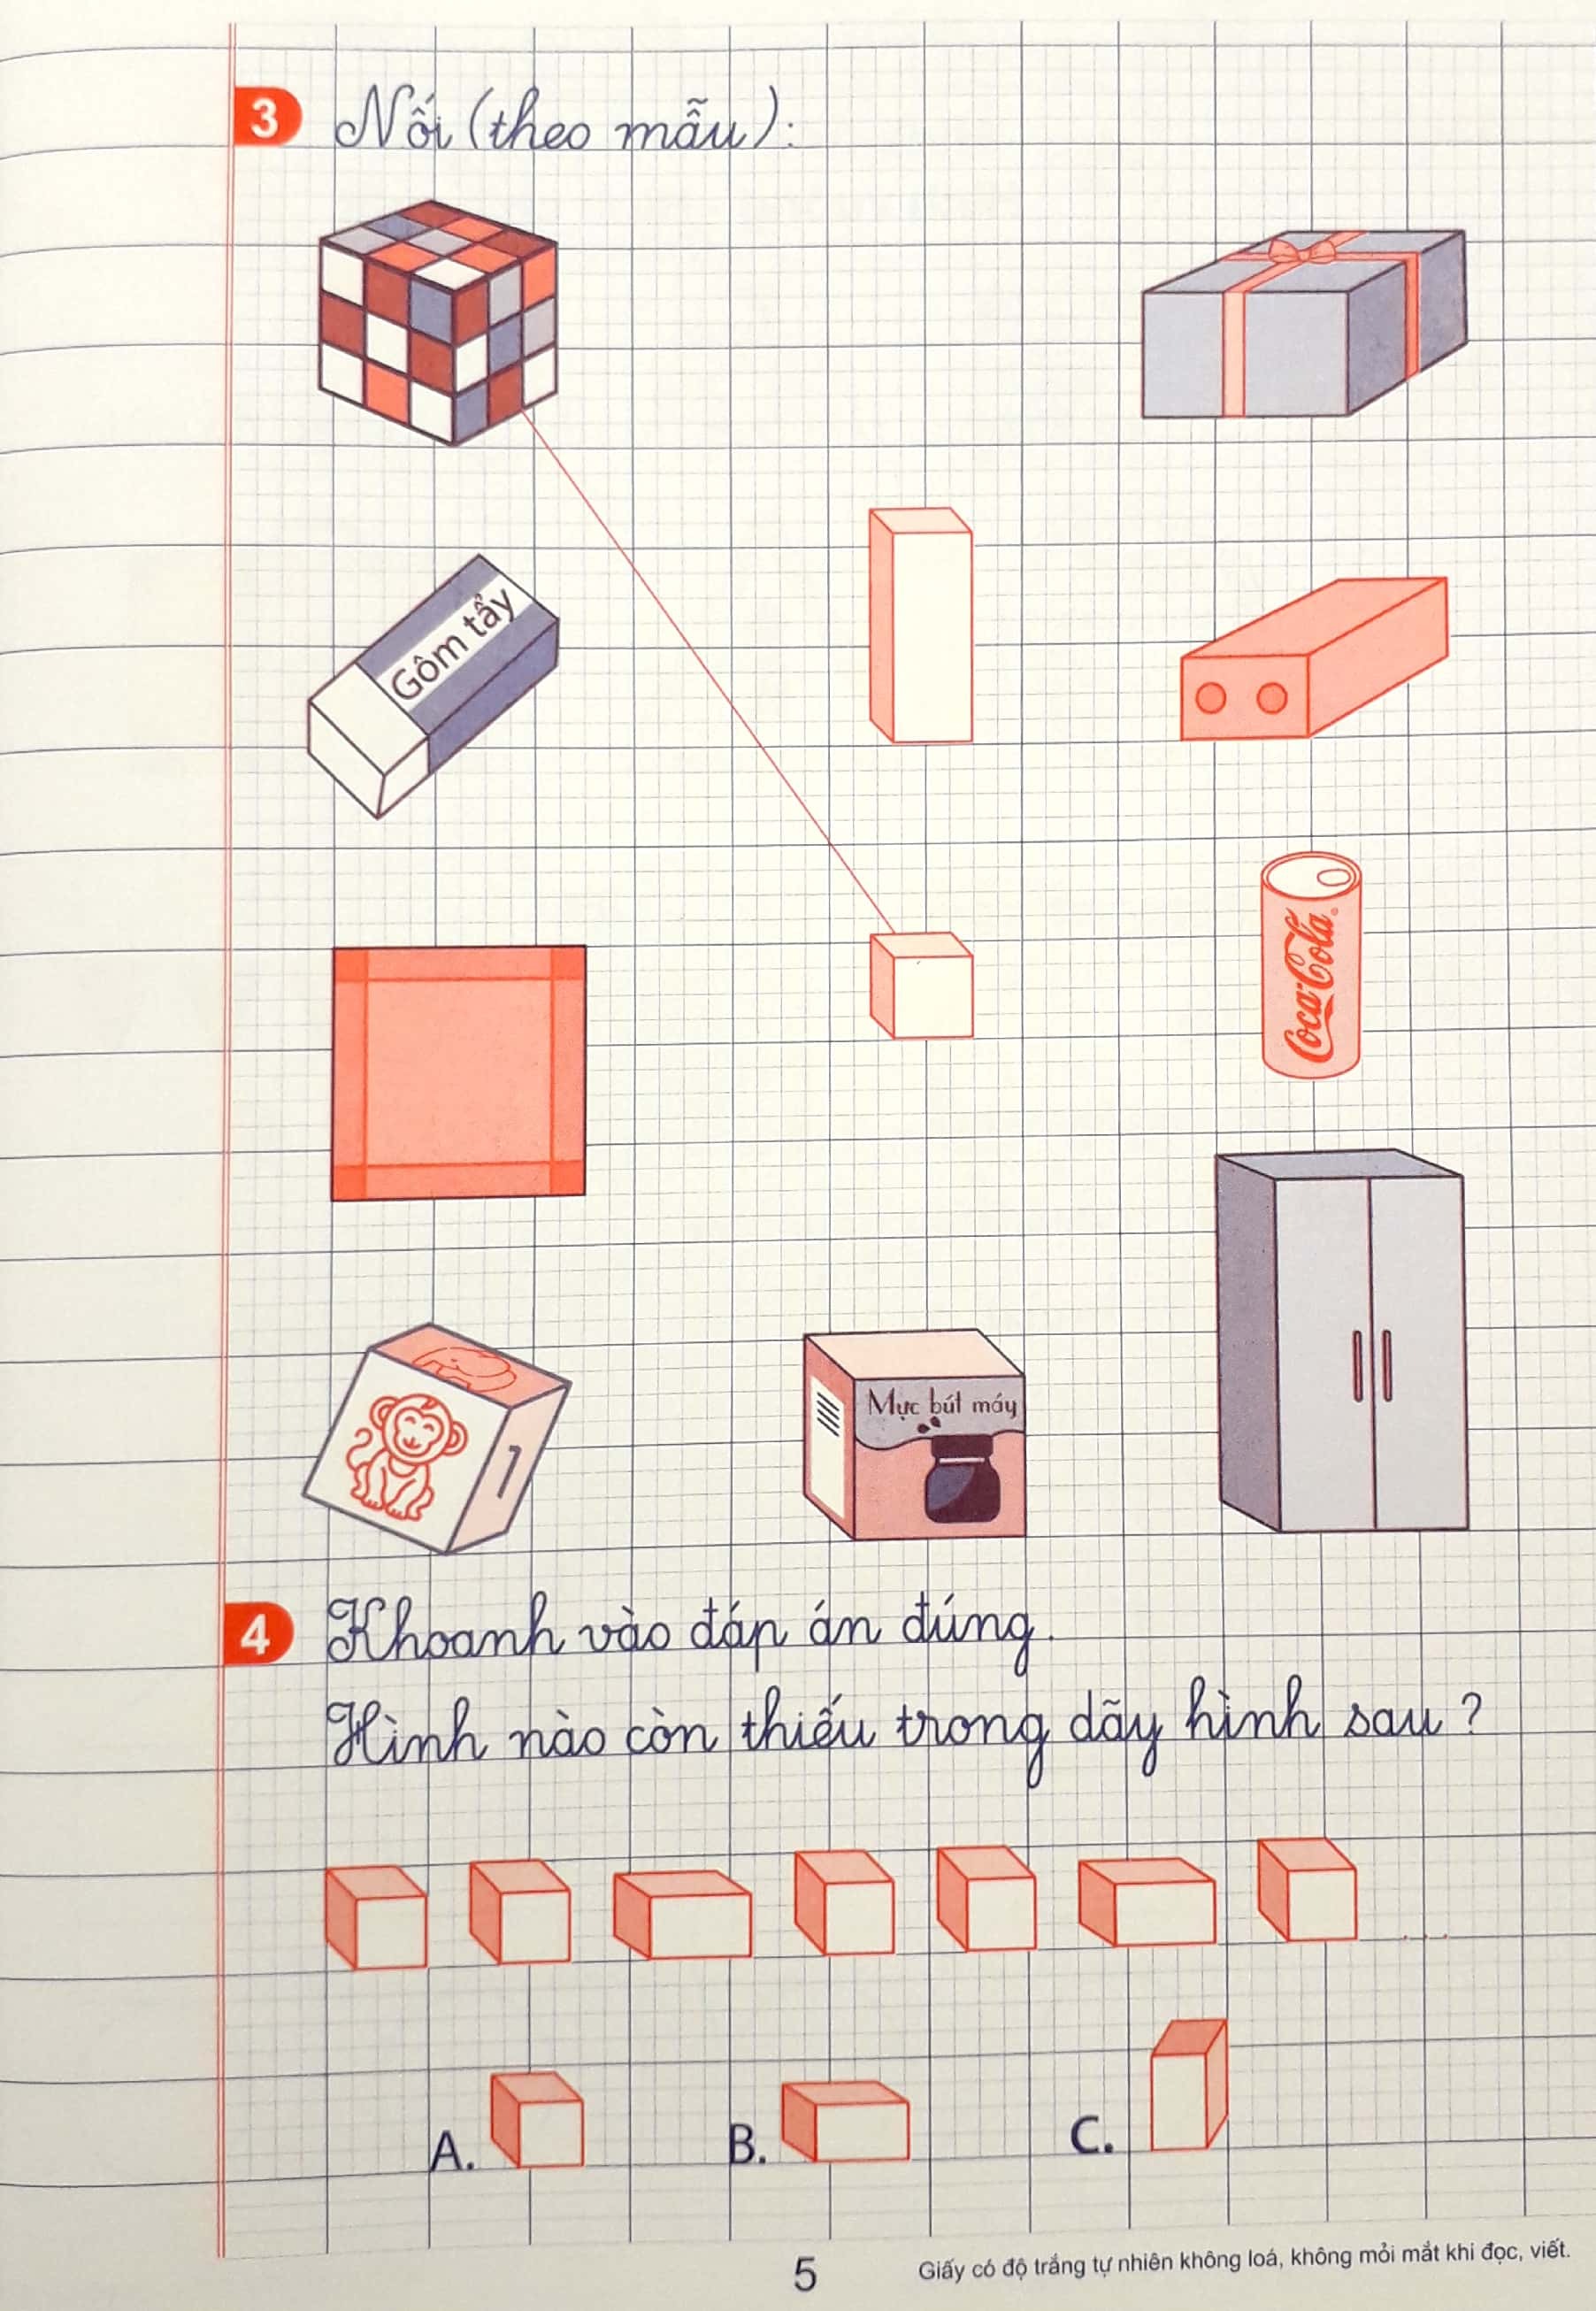 3 Nối (theo mẫu):
Gôm tẩy
Coca-Cola
1
Mực bút máy
4 Khoanh vào đáp án đúng.
Hình nào còn thiếu trong dãy hình sau ?
...
A. B. C.
5
Giấy có độ trắng tự nhiên không loá, không mỏi mắt khi đọc, viết.